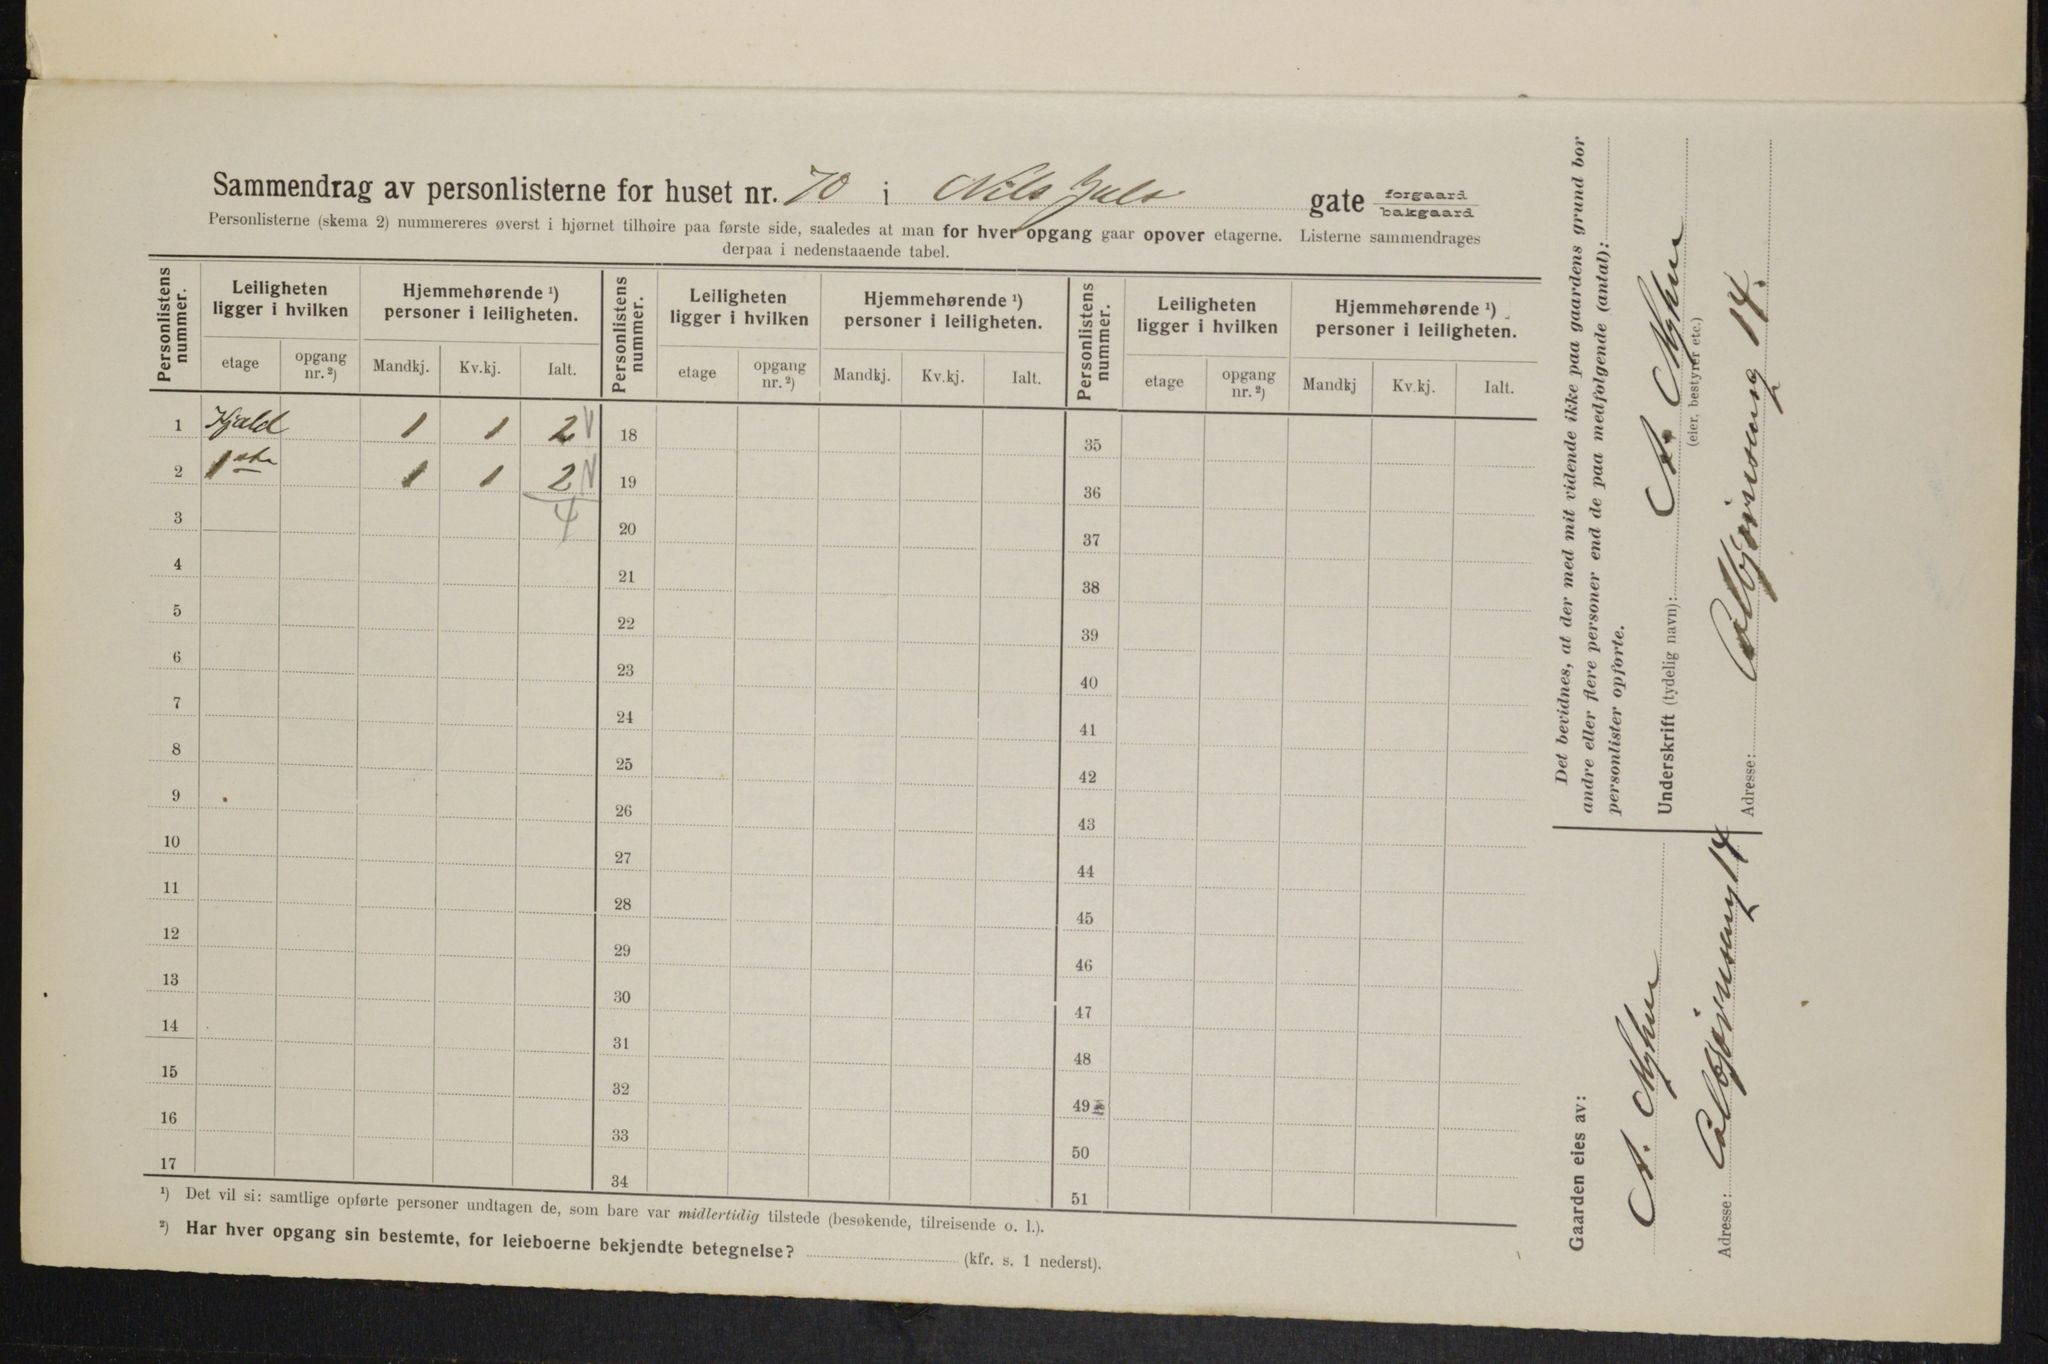 Sammendrag av personlisterne for huset nr. 70 i Nils Juls gate forgaard bakgaard
Personlisterne (skema 2) nummereres øverst i hjørnet tilhøire paa første side, saaledes at man for hver opgang gaar opover etagerne. Listerne sammendrages
derpaa i nedenstaaende tabel.
Personlistens nummer. Leiligheten ligger i hvilken Hjemmehørende ¹) personer i leiligheten. Personlistens nummer. Leiligheten ligger i hvilken Hjemmehørende ¹) personer i leiligheten. Personlistens nummer. Leiligheten ligger i hvilken Hjemmehørende ¹) personer i leiligheten.
etage opgang nr. ²) Mandkj. Kv.kj. Ialt. etage opgang nr. ²) Mandkj. Kv.kj. Ialt. etage opgang nr. ²) Mandkj Kv.kj. Ialt.
1 Kjæld 1 1 2 18 35
2 1ste 1 1 2 19 36
3 4 20 37
4 21 38
5 22 39
6 23 40
7 24 41
8 25 42
9 26 43
10 27 44
11 28 45
12 29 46
13 30 47
14 31 48
15 32 49
16 33 50
17 34 51
¹) Det vil si: samtlige opførte personer undtagen de, som bare var midlertidig tilstede (besøkende, tilreisende o. l.).
²) Har hver opgang sin bestemte, for leieboerne bekjendte betegnelse? (kfr. s. 1 nederst).
Det bevidnes, at der med mit vidende ikke paa gaardens grund bor
andre eller flere personer end de paa medfølgende (antal):
personlister opførte.
Underskrift (tydelig navn): A. Myhre
(eier, bestyrer etc.)
Adresse: Colbjørnsensg 14.
Gaarden eies av:
A. Myhre
Adresse: Colbjørnsensg 14